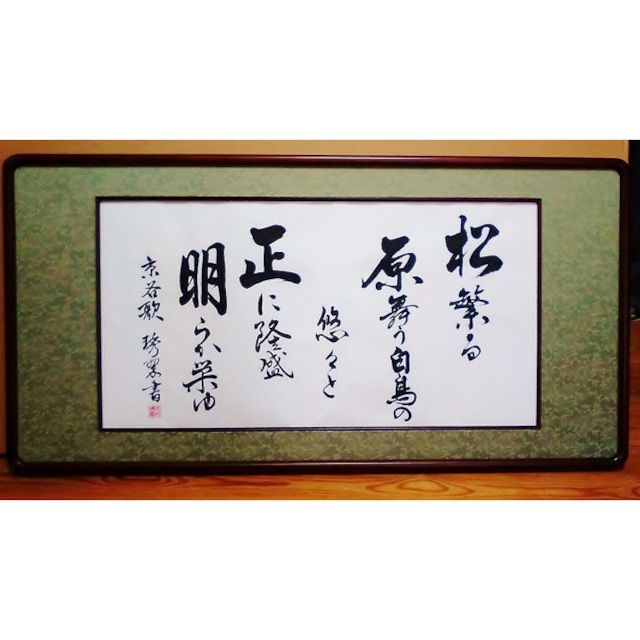 松繁る
原舞う白鳥の
悠々と
正に隆盛
明らか栄ゆ
京谷歌 書